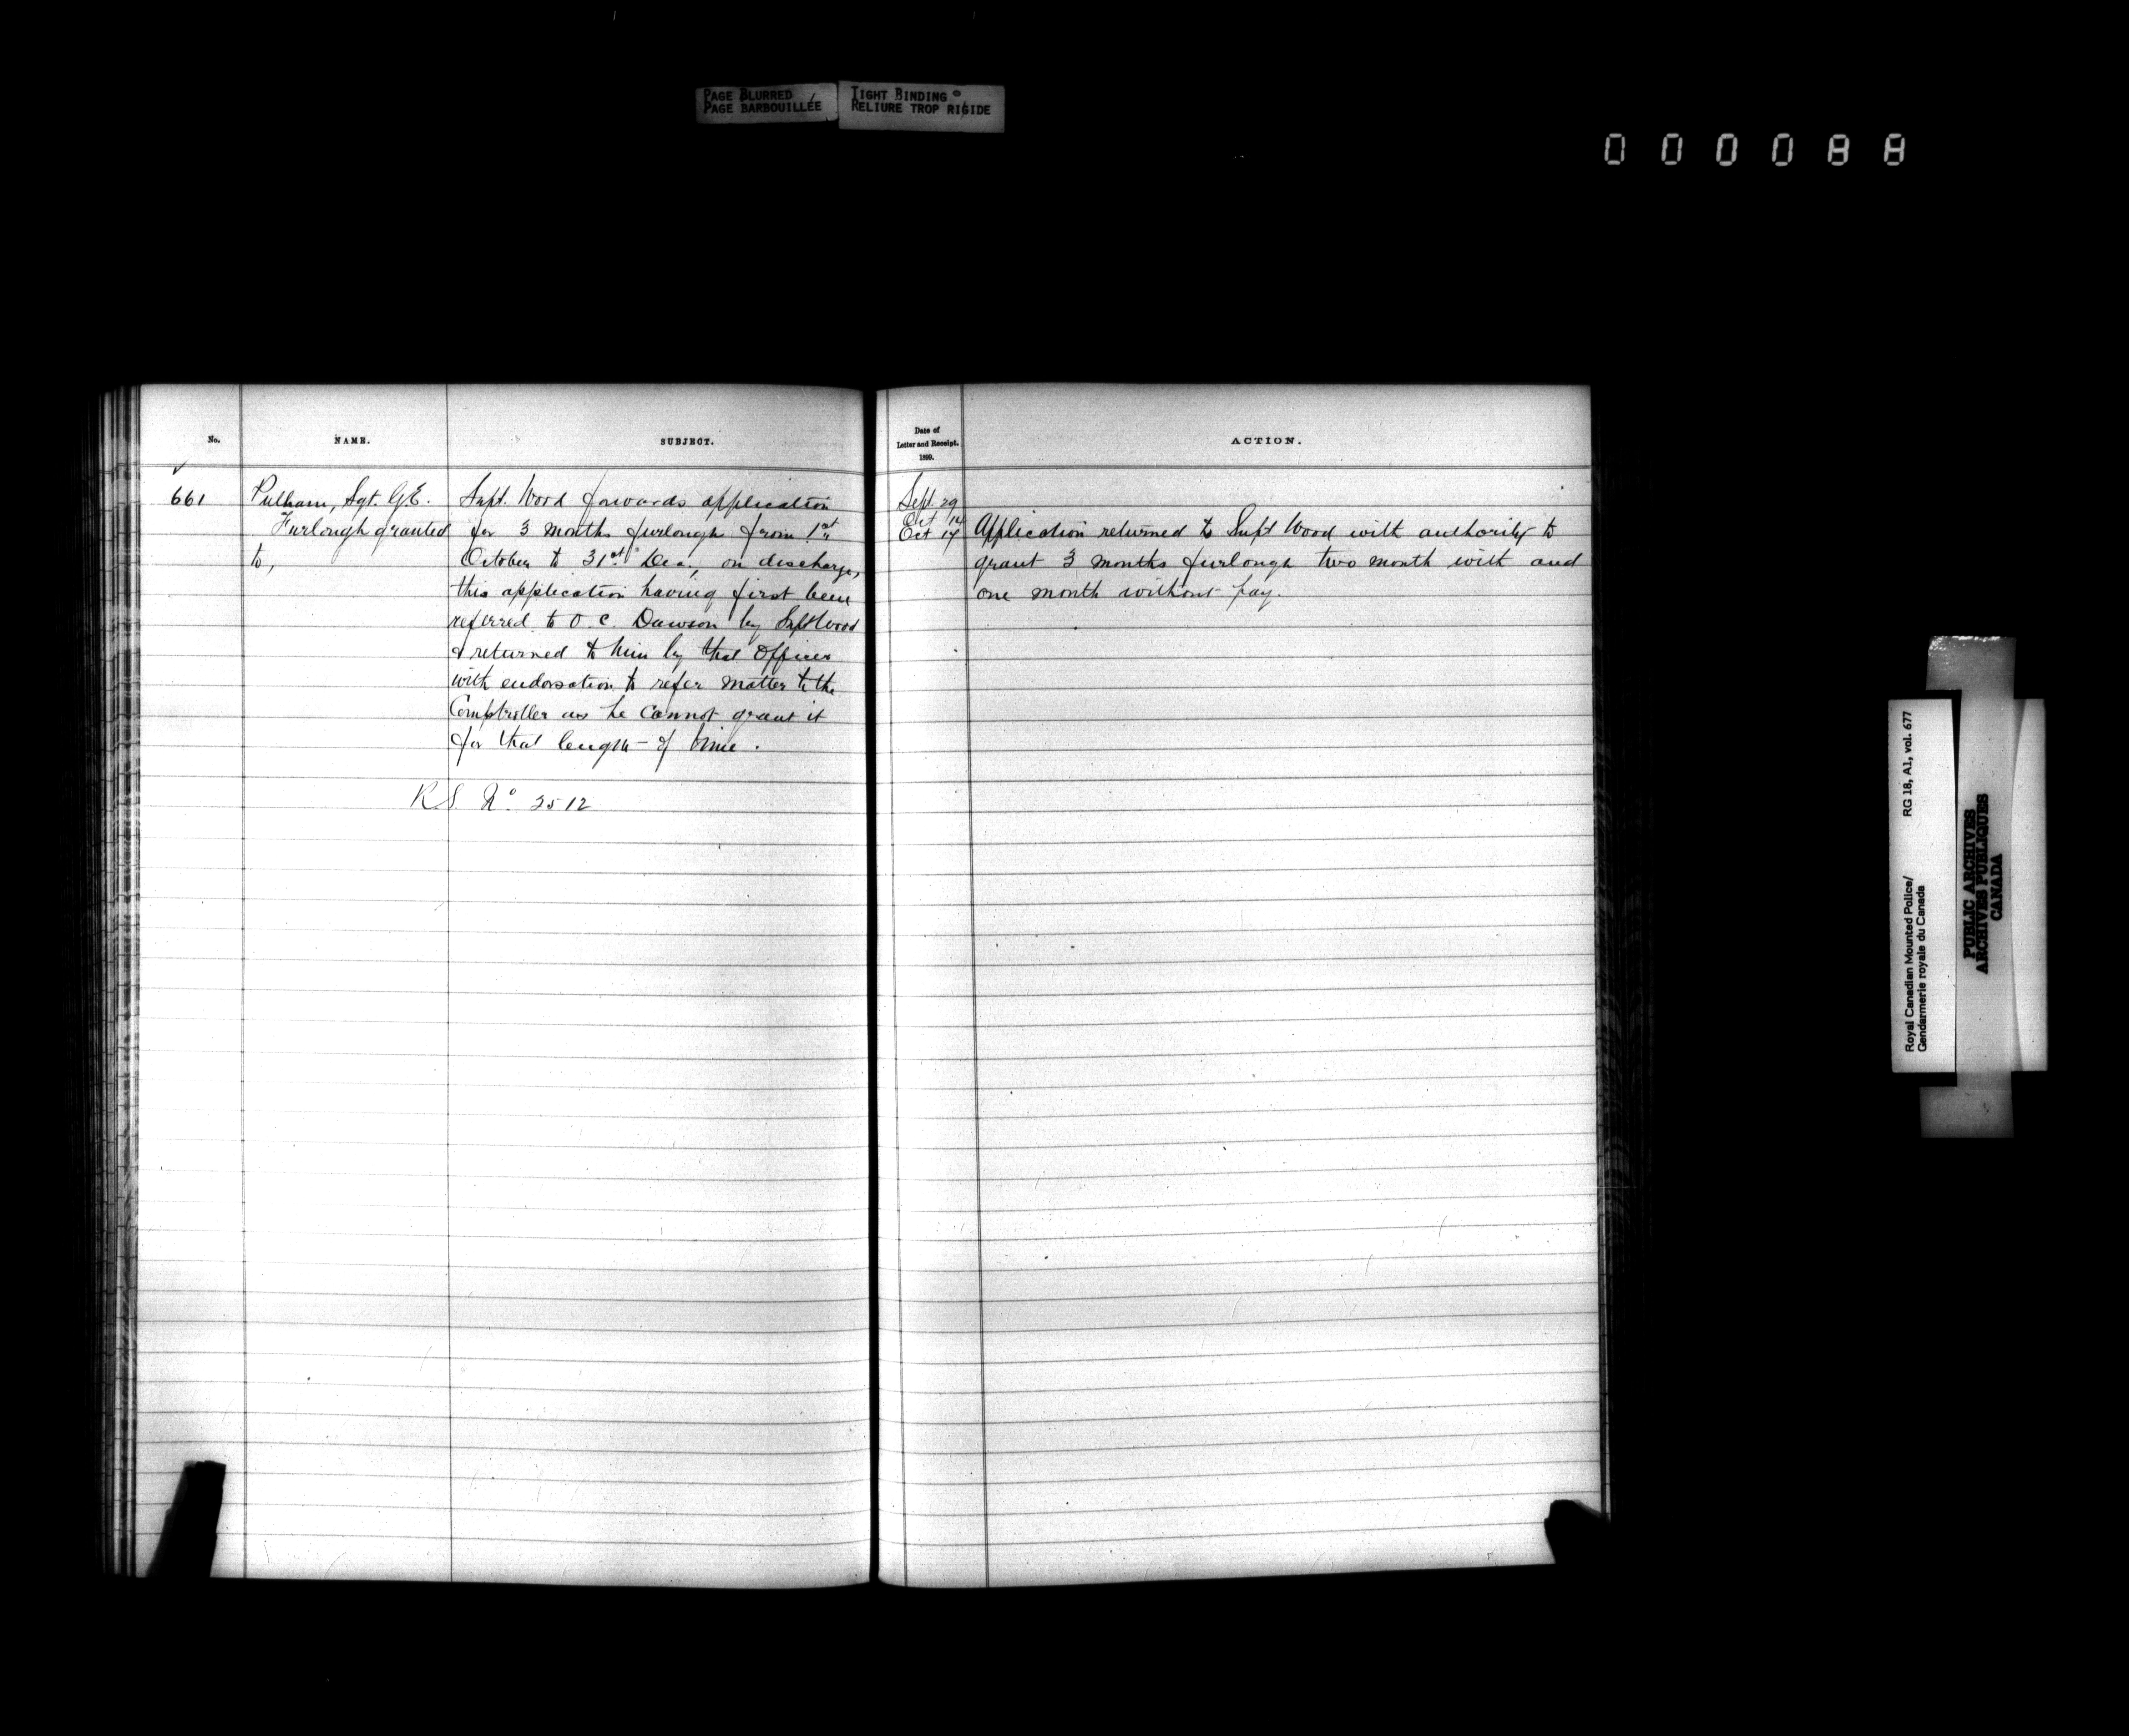 PAGE BLURRED
PAGE BARBOUILLÉE
TIGHT BINDING
RELIURE TROP RIGIDE
000088
No.
NAME.
SUBJECT.
661
Pulham, Sgt. G.E.
Furlough granted
to,
Supt. Wood forwards application
for 3 months furlough from 1st
October to 31st Dec., on discharge,
this application having first been
referred to O.C. Dawson by Supt Wood
& returned to him by that Officer
with endorsation to refer matter to the
Comptroller as he cannot grant it
for that length of time.
RS No. 3512
Date of
Letter and Receipt.
1899.
ACTION.
Sept. 29
Oct 14
Oct 17
Application returned to Supt Wood with authority to
grant 3 months furlough two month with and
one month without pay.
Royal Canadian Mounted Police/
Gendarmerie royale du Canada
RG 18, A1, vol. 677
PUBLIC ARCHIVES
ARCHIVES PUBLIQUES
CANADA